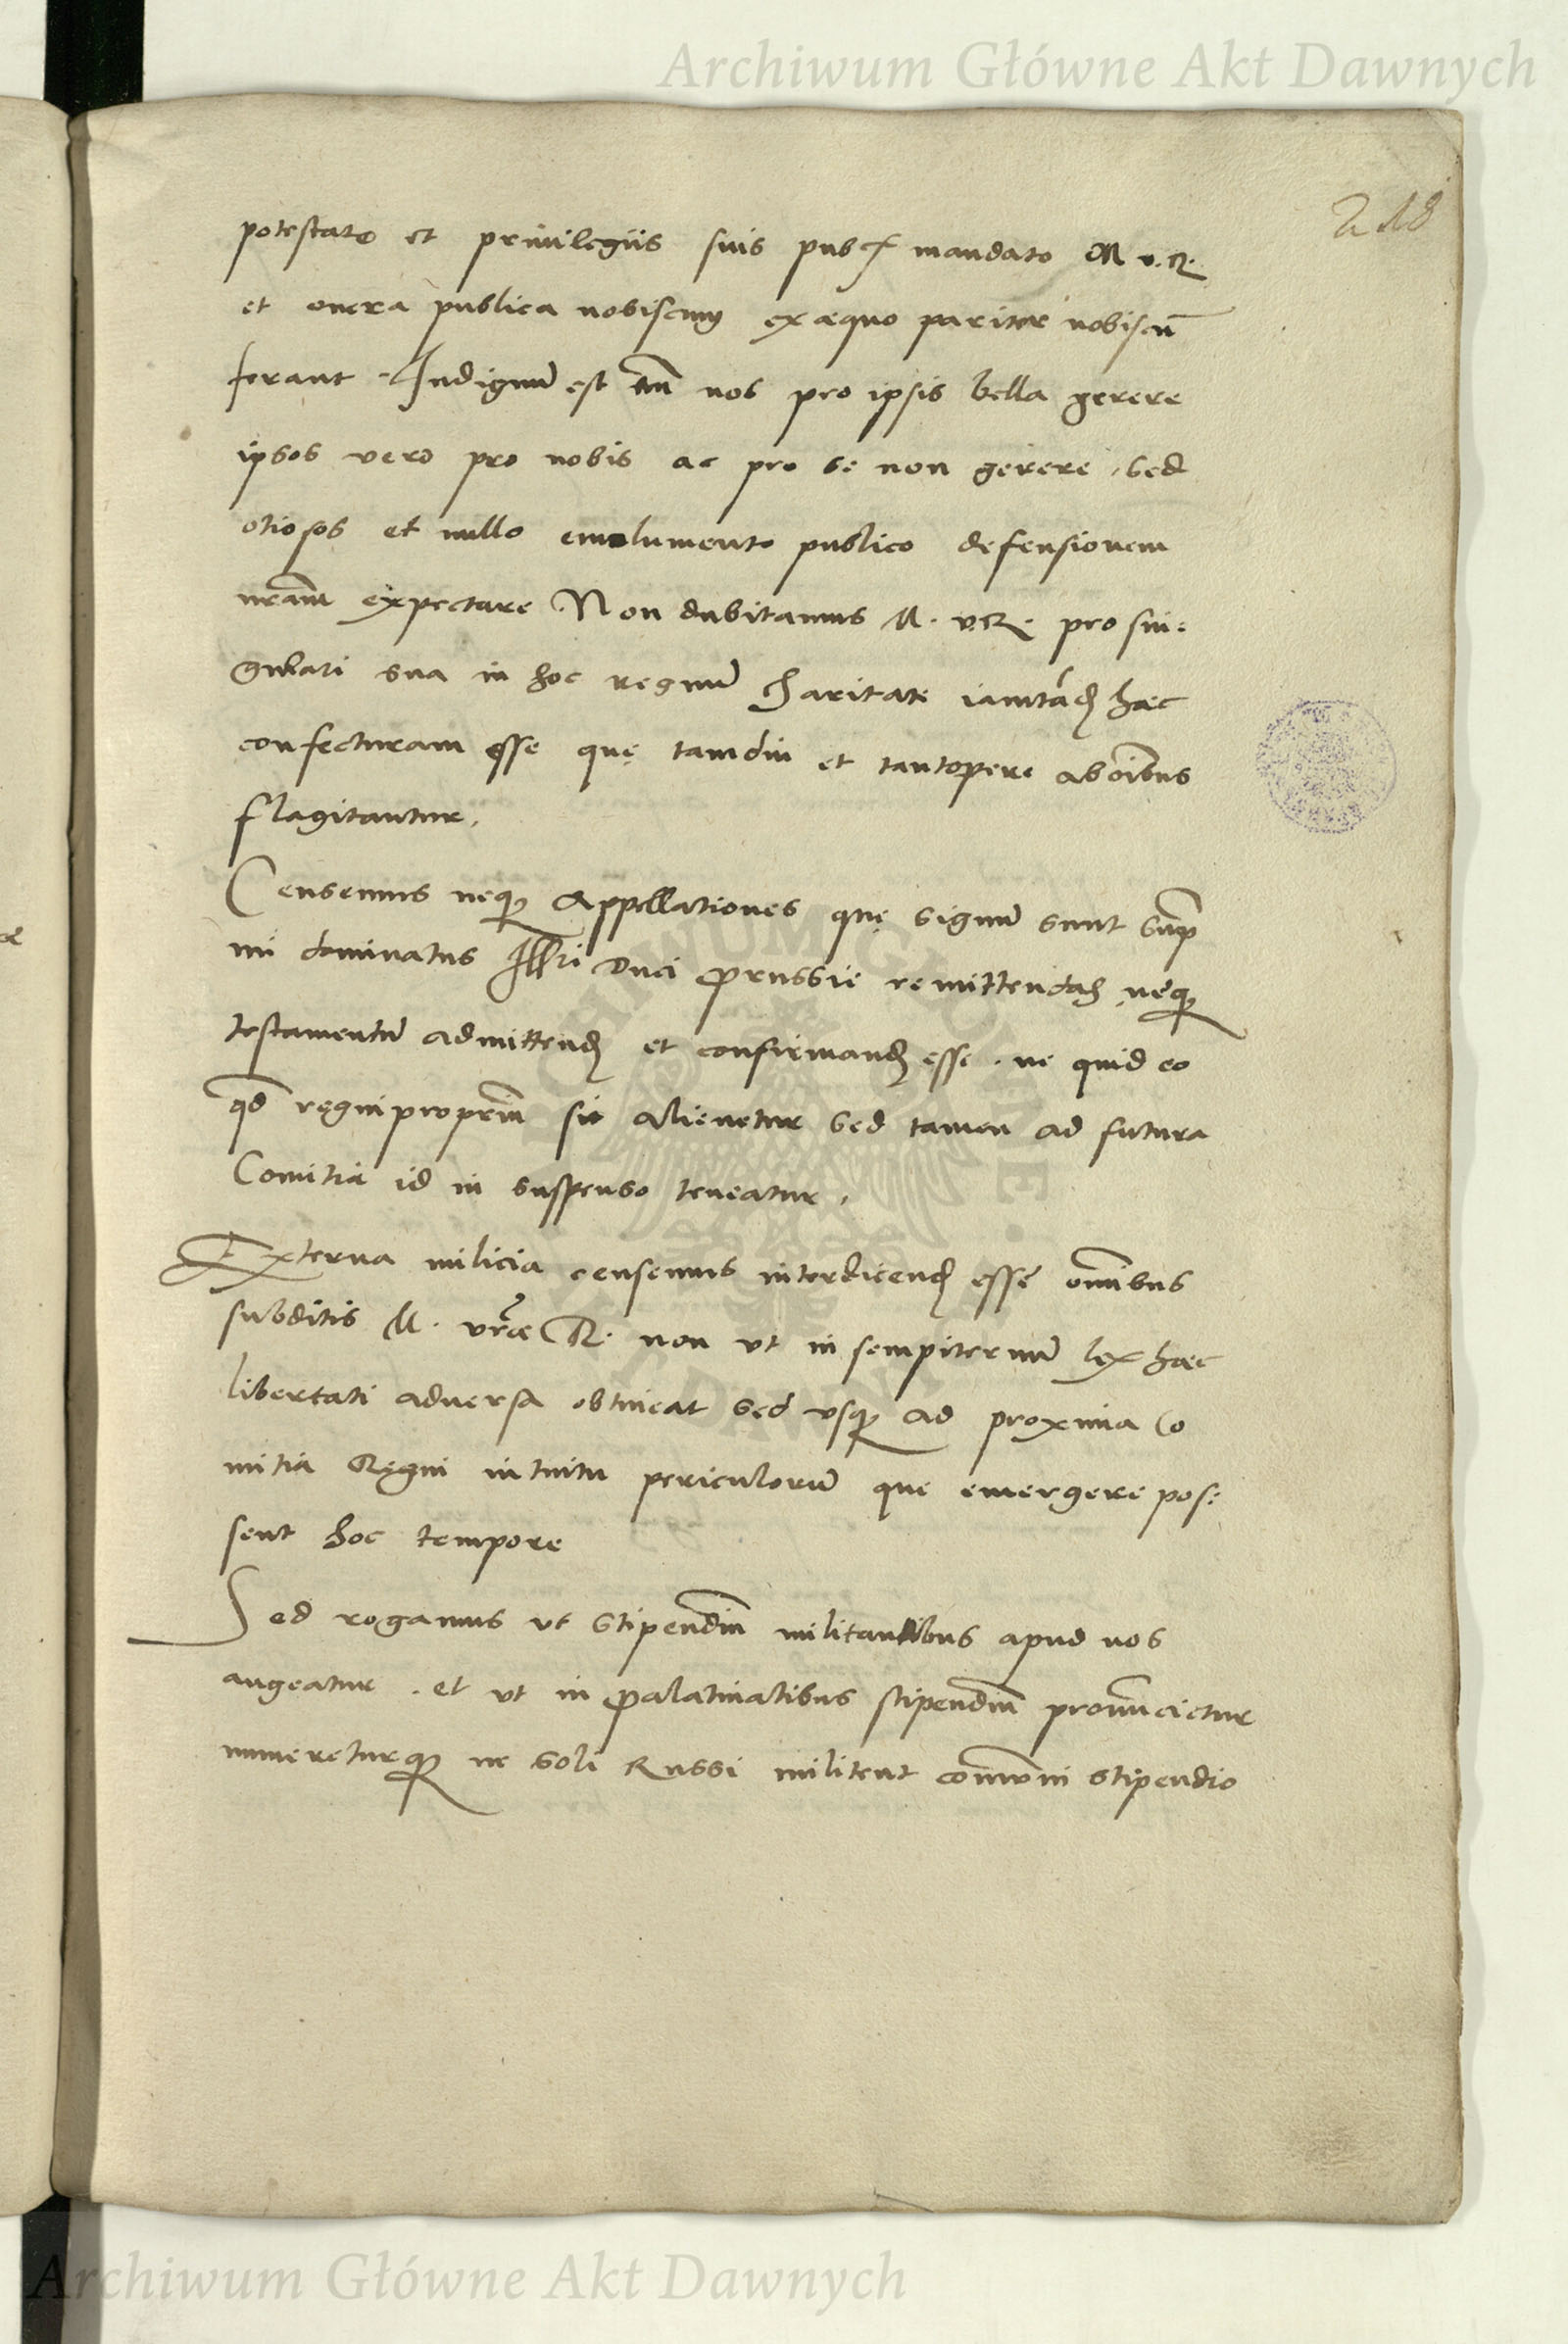 Archiwum Główne Akt Dawnych
218
potestate et privilegiis suis mandato M v.R.
et onera publica nobiscum ex æquo pariter nobiscū
ferant. Indignū est nos pro ipsis bella gerere
ipsos vero pro nobis ac pro se non gerere, sed
otiosos et nullo emolumento publico defensionem
nrām expectare. Non dubitamus M. v.R. pro sin:
gulari sua in hoc regnū charitate hæc
confecturam esse quę tamdiu et tantopere ab oībus
flagitantur.
Censemus neqз Appellationes quę signū sunt sup̄
mi dominatus Illri Duci Prussię remittendas neqз
testamentū admittend et confirmand esse. ne quid eo
qd regni propriū sit alienetur sed tamen ad futura
Comitia id in suspenso teneatur.
Externa milicia censemus interdicend esse omībus
subditis M. vræ R. non ut in sempiternū lex hæc
libertati adversa obtineat sed usqз ad proxima Co
mitia Regni intuitu periculorū que emergere pos:
sent hoc tempore
Sed rogamus ut stipendiū militantibus apud nos
augeatur. et ut in Palatinatibus stipendiū pronūcietur
numereturqз ne soli Russi militent stipendio
Archiwum Główne Akt Dawnych